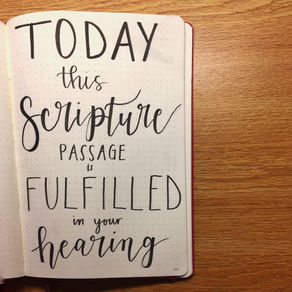 TODAY
this
Scripture
PASSAGE
is
FULFILLED
in your
hearing